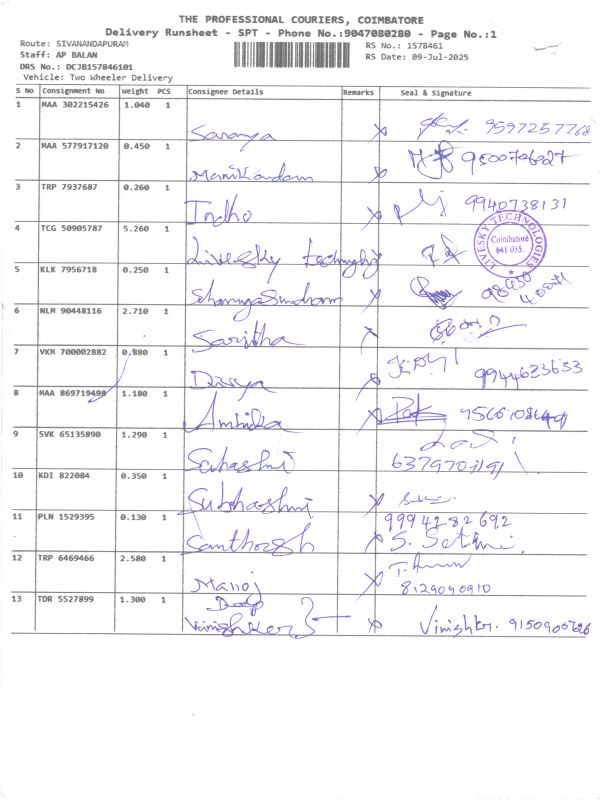 THE PROFESSIONAL COURIERS, COIMBATORE
Delivery Runsheet - SPT - Phone No.:9047080280 - Page No.:1
Route: SIVANANDAPURAM RS No.: 1578461
Staff: AP BALAN RS Date: 09-Jul-2025
DRS No.: DCJB157846101
Vehicle: Two Wheeler Delivery
S No Consignment No Weight PCS Consignee Details Remarks Seal & Signature
1 MAA 302215426 1.040 1
Saranya 9597257768
2 MAA 577917120 0.450 1
Manikandan
3 TRP 7937687 0.260 1
Indho 9940738131
4 TCG 50905787 5.260 1
Livesky technology
LIVESKY TECHNOLOGIES
Coimbatore
641 035.
5 KLK 7956718 0.250 1
6 NLM 90448116 2.710 1
Saritha
7 VKM 700002882 0.880 1
Divya 9944623653
8 MAA 869719498 1.180 1
Ambika
9 SVK 65135890 1.290 1
Suhashni
10 KDI 822084 0.350 1
Subhashni
11 PLN 1529395 0.130 1
9994282692
Santhosh
12 TRP 6469466 2.580 1
Manoj 8129090910
13 TDR 5527899 1.300 1
Vinishker